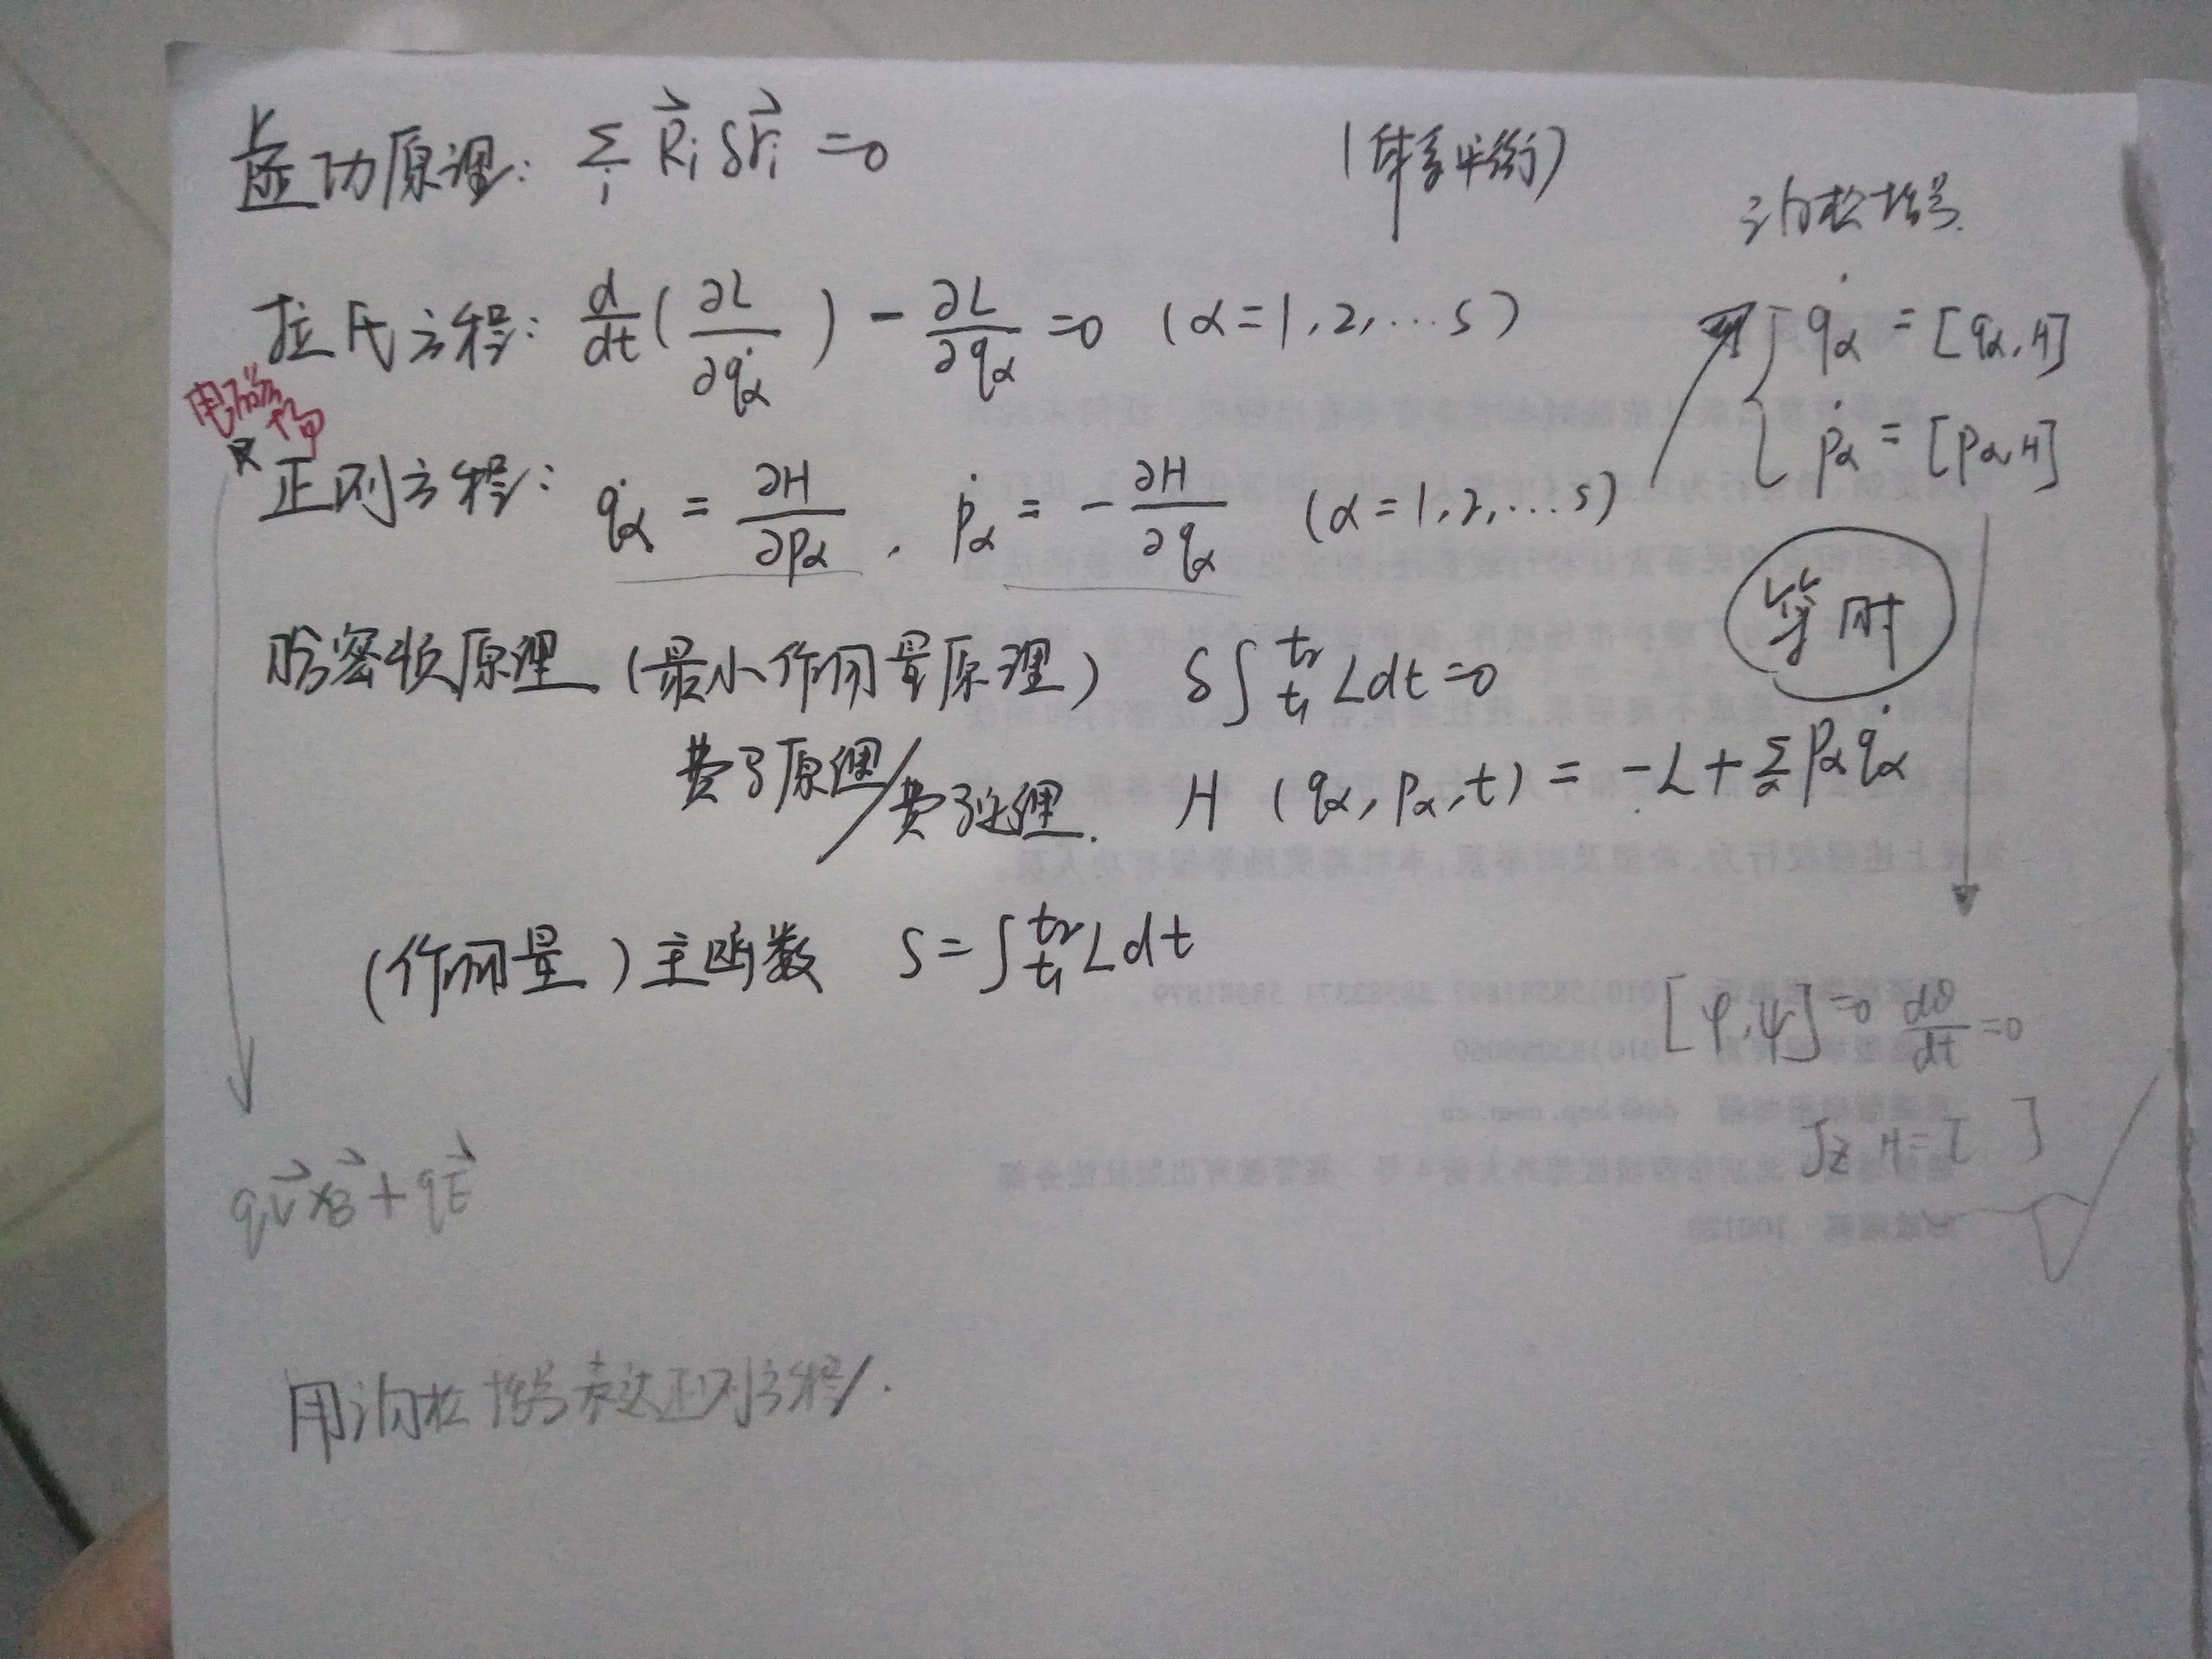 虚功原理: $\sum_i \vec{R}_i \delta\vec{r}_i = 0$ (体系平衡)
泊松括号.
拉氏方程: $\frac{d}{dt}(\frac{\partial L}{\partial \dot{q}_\alpha}) - \frac{\partial L}{\partial q_\alpha} = 0$ (α=1,2,...s)
$\dot{q}_\alpha = [q_\alpha, H]$
$\dot{p}_\alpha = [p_\alpha, H]$
电磁场
正则方程: $\dot{q}_\alpha = \frac{\partial H}{\partial p_\alpha}$, $\dot{p}_\alpha = -\frac{\partial H}{\partial q_\alpha}$ (α=1,2,...s)
等时
哈密顿原理 (最小作用量原理) $\delta\int_{t_1}^{t_2} L dt = 0$
费马原理/费马定理. $H(q_\alpha, p_\alpha, t) = -L + \sum_\alpha p_\alpha \dot{q}_\alpha$
(作用量) 主函数 $S = \int_{t_1}^{t_2} L dt$
$[\varphi, \psi] = 0$ $\frac{d\theta}{dt} = 0$
$J_z$ H=[ ]
$q\vec{v}\times\vec{B} + q\vec{E}$
用泊松括号表达正则方程.